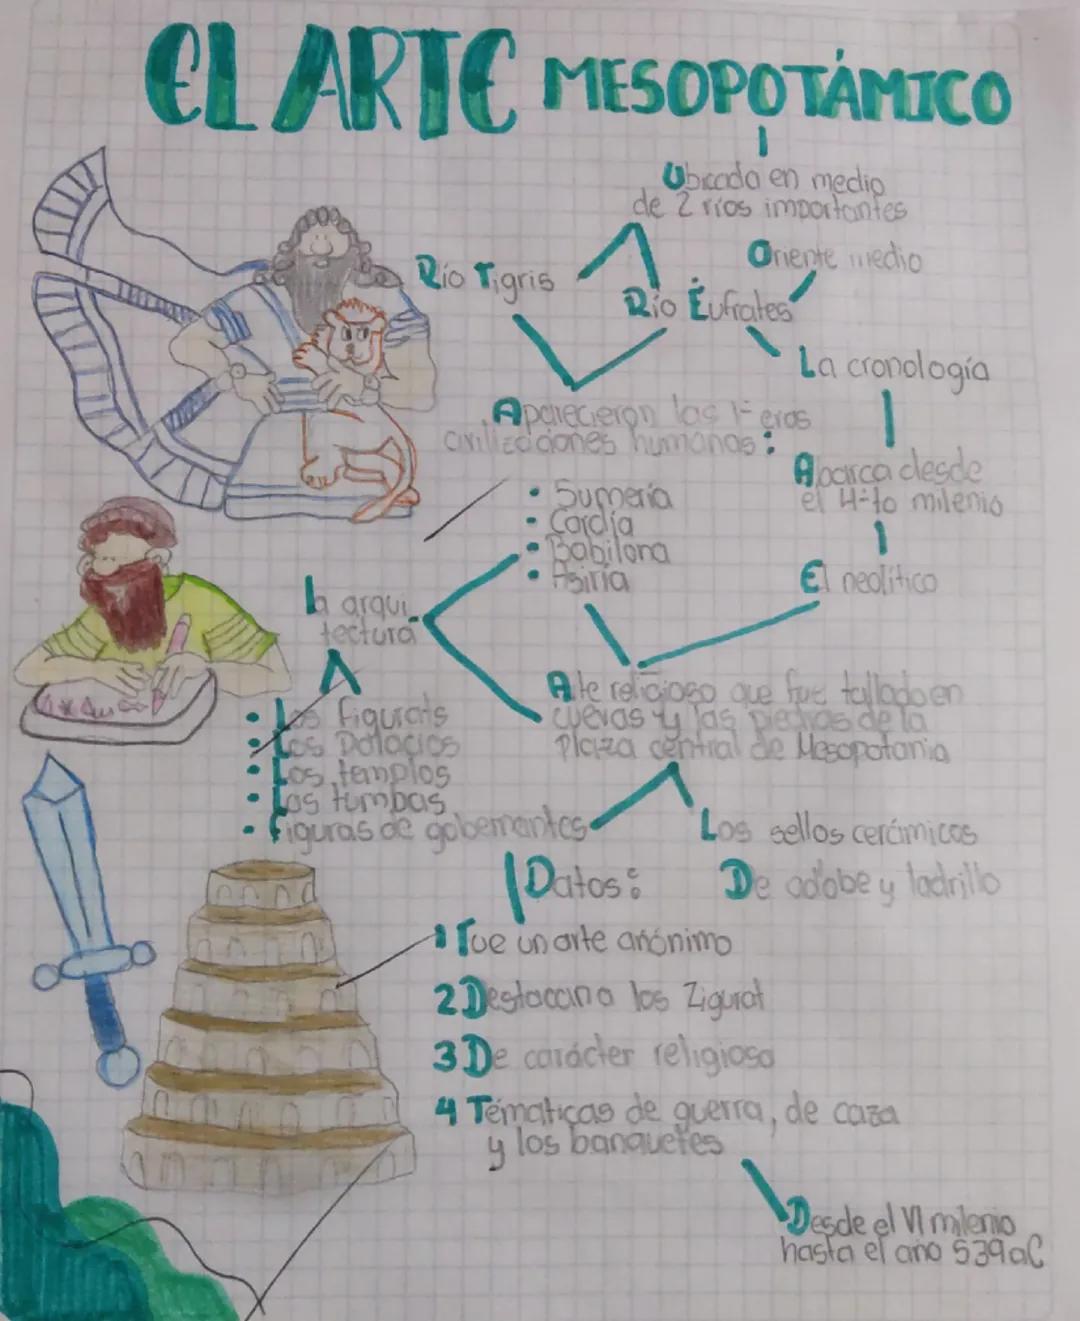 EL ARTE MESOPOTÁMICO
Ubicada en medio
de 2 ríos importantes
Oriente medio
Río Tigris
Río Éufrates
La cronología
Aparecieron las 1-eras
civilizaciones humanas:
Abarca desde
el 4-to milenio
• Sumeria
• Cardía
• Babilona
• Asiria
El neolítico
la arqui_
tectura
Arte religioso que fue tallado en
cuevas y las piedras de la
plaza central de Mesopotamia
• Los figurats
• Los Palacios
• Los templos
• Las tumbas
• Figuras de gobernantes
Los sellos cerámicos
Datos:
De adobe y ladrillo
1 Fue un arte anónimo
2 Destacan a los Zigurat
3 De carácter religioso
4 Tématicas de guerra, de caza
y los banquetes
Desde el VI milenio
hasta el año 539 aC